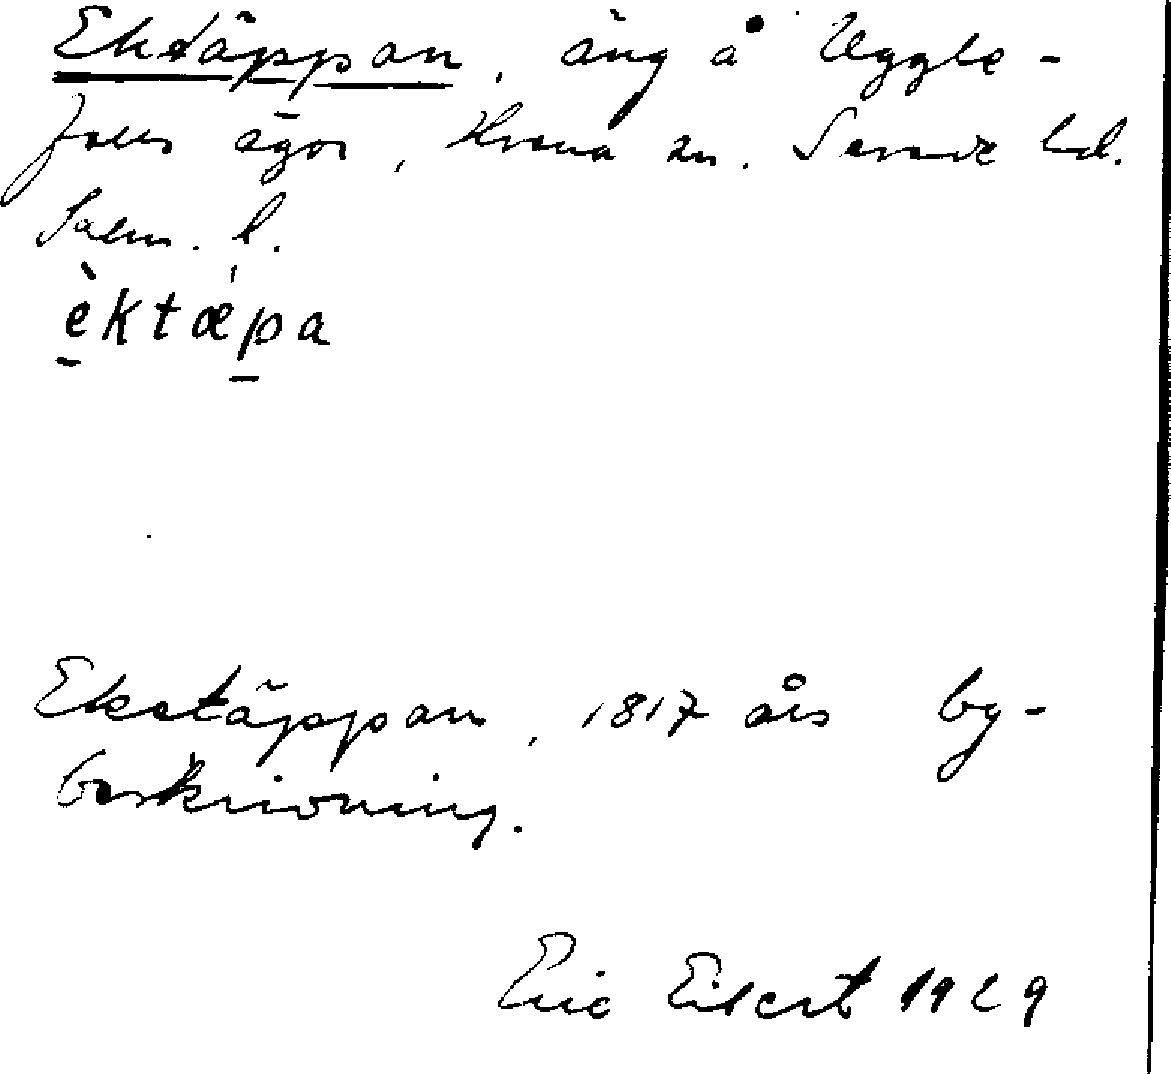 Ektäppan, äng å Uggle-
falls ägor, Hvena sn. Sevede hd.
Kalm. l.
èktǽpa
Ekstäppan, 1817 års by-
beskrivning.
Eric Eilert 1929